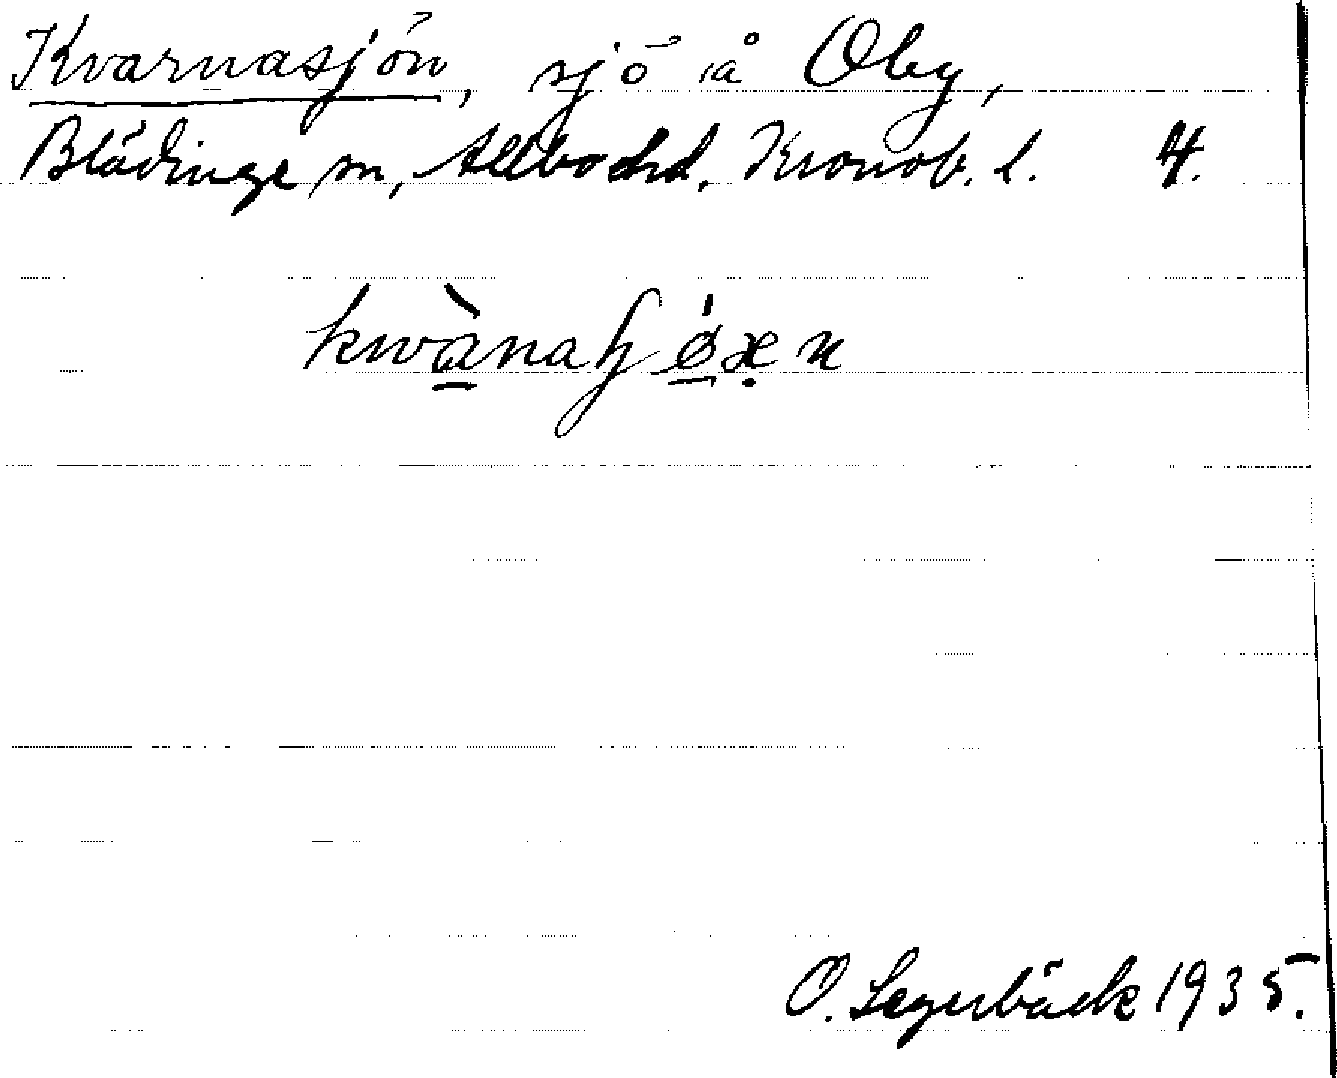 Kvarnasjön, sjö å Oby,
Blädinge sn, Allbo hd, Kronob. l. 4.
O. Segerbäck 1935.